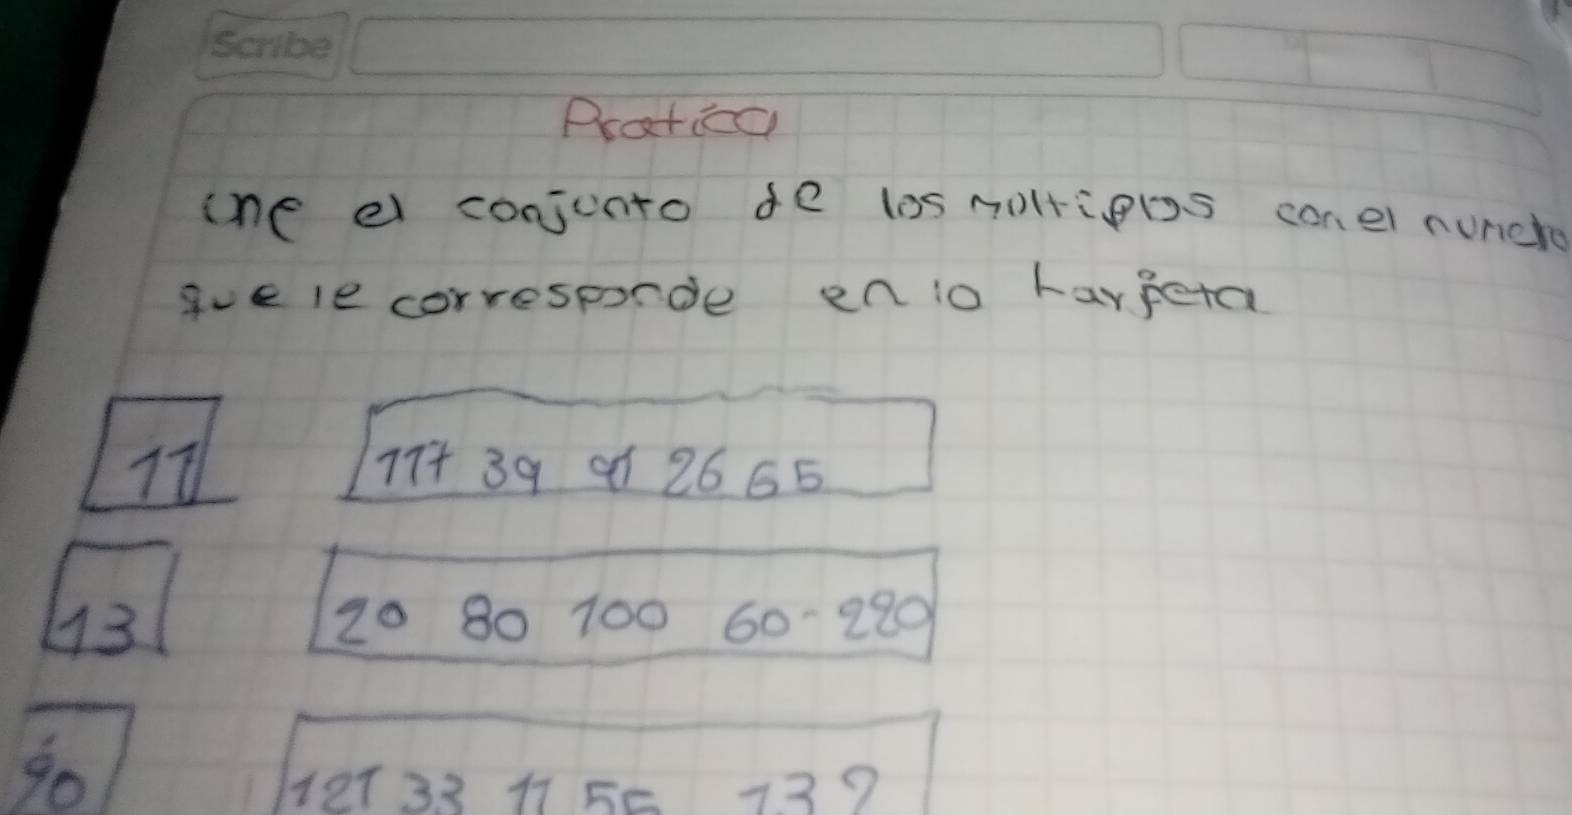 Scribe
Pratica
une el conjunto de los moltiplos con el numero
que le corresponde en la tarjeta
11 117 39 91 26 65
13 20 80 100 60-220
20 121 33 11 55 132